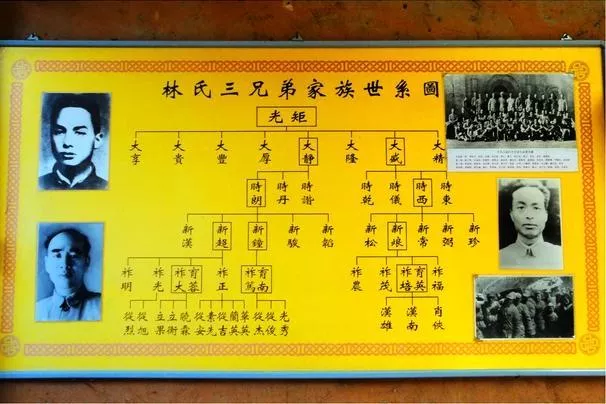 林氏三兄弟家族世系圖
光矩
大享 大貴 大豐 大厚 大靜 大隆 大盛 大精
時朗 時丹 時諧 時乾 時儀 時西 時東
新漢 新超 新鐘 新駿 新韜 新松 新琅 新常 新弼 新珍
祚明 祚光 祚大 育蓉 祚正 祚篤 育南 祚農 祚茂 祚培 育英 祚福
從烈 從旭 立果 立衡 曉霖 從安 素先 從吉 蘭英 華英 從杰 從俊 光秀 漢雄 漢南 肖俠